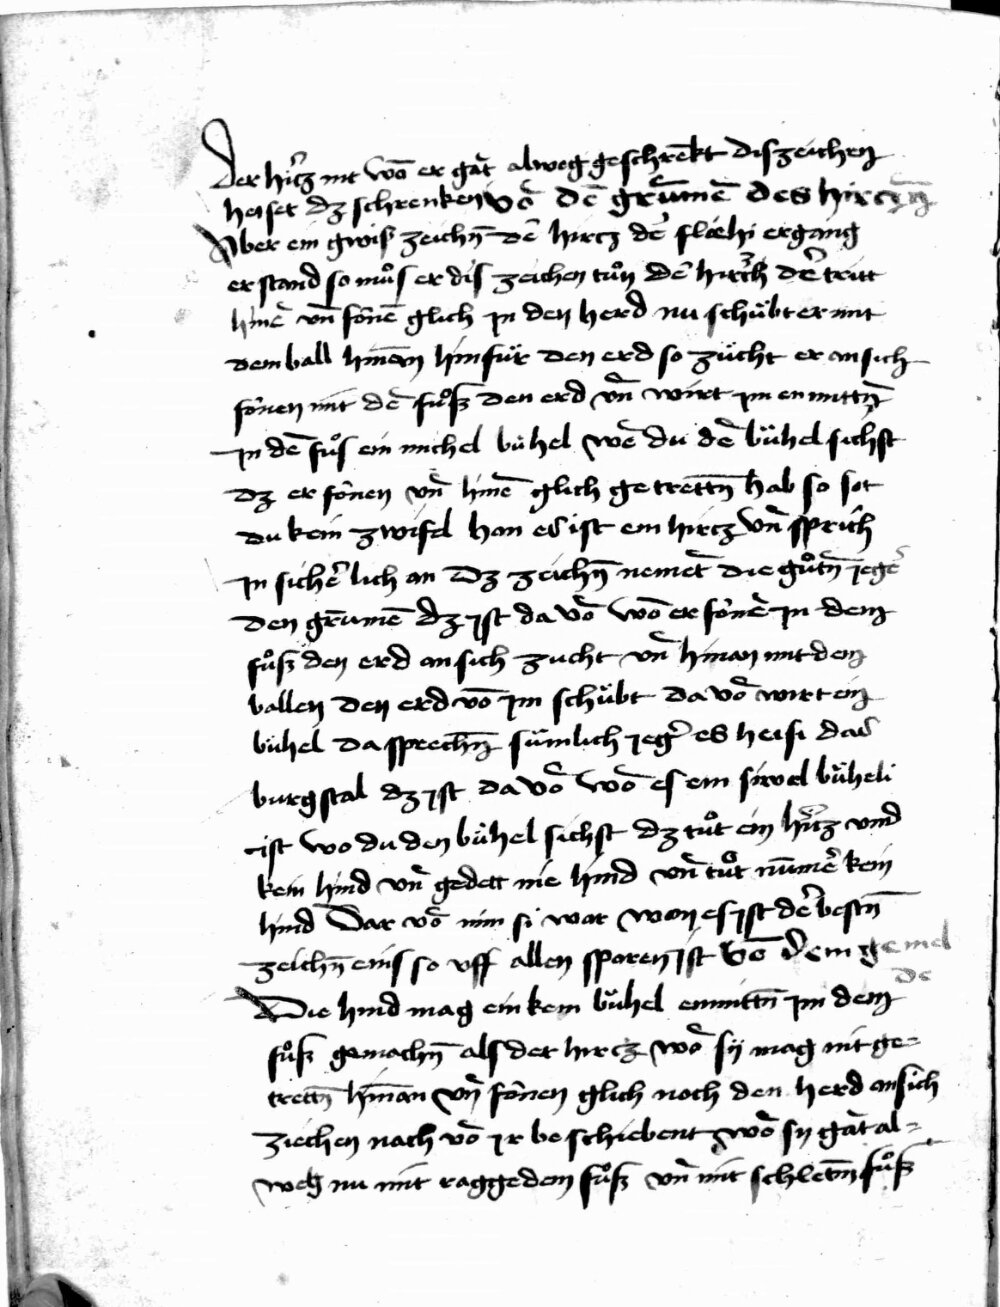 Der hircz nit wō er gāt alweg geschrēkt dis zeichen
heiset dz schrenken vō dē grūmē des hircz
Aber ein gwiß zeichn̄ dē hircz dē flöchi ergang
er stand so můs er dis zeichen tůn dē hirczh dē tritt
hinē vn̄ fōnē glich jn den herd nu schübt er mit
dem ball hinen hinfür den erd so zücht er an sich
fōnen mit dē fůß den erd vn̄ wirt jm enmittn̄
jn dē fůs ein michel bühel wē du dē bühel sichst
dz er fōnen vn̄ hinē glich getrettn̄ hab so sot
du kein zwifel han es ist ein hircz vn̄ sprich
jn sichēlich an dz zeichn̄ nemēt die gůtn̄ jegē
den grūmē dz jst da vō wō er fōnē jn dem
fůß den erd an sich zucht vn̄ hinan mit dem
ballen den erd vō jm schübt da vō wirt ein
bühel da sprechn̄ sümlich jegē es heisi das
burgstal dz jst da vō wō es ein sinvel büheli
ist wo du den bühel sichst dz tůt ein hircz vnd
kein hind vn̄ gedett nie hind vn̄ tůt nūmē kein
hind Dar vō nim si war won es jst dē bestn̄
zeichn̄ eins so vff allen sporen jst vō dem gemel
de
Die hind mag ein kein bühel enmittn̄ jm dem
fůß gemachn̄ als der hircz wō sy mag nit ge=
trettn̄ hinan vn̄ fōnen glich noch den herd an sich
ziechen nach vō jr beschiebent wō sy gāt al=
weg nu mit raggedem fůß vn̄ mit schletn̄ fůß